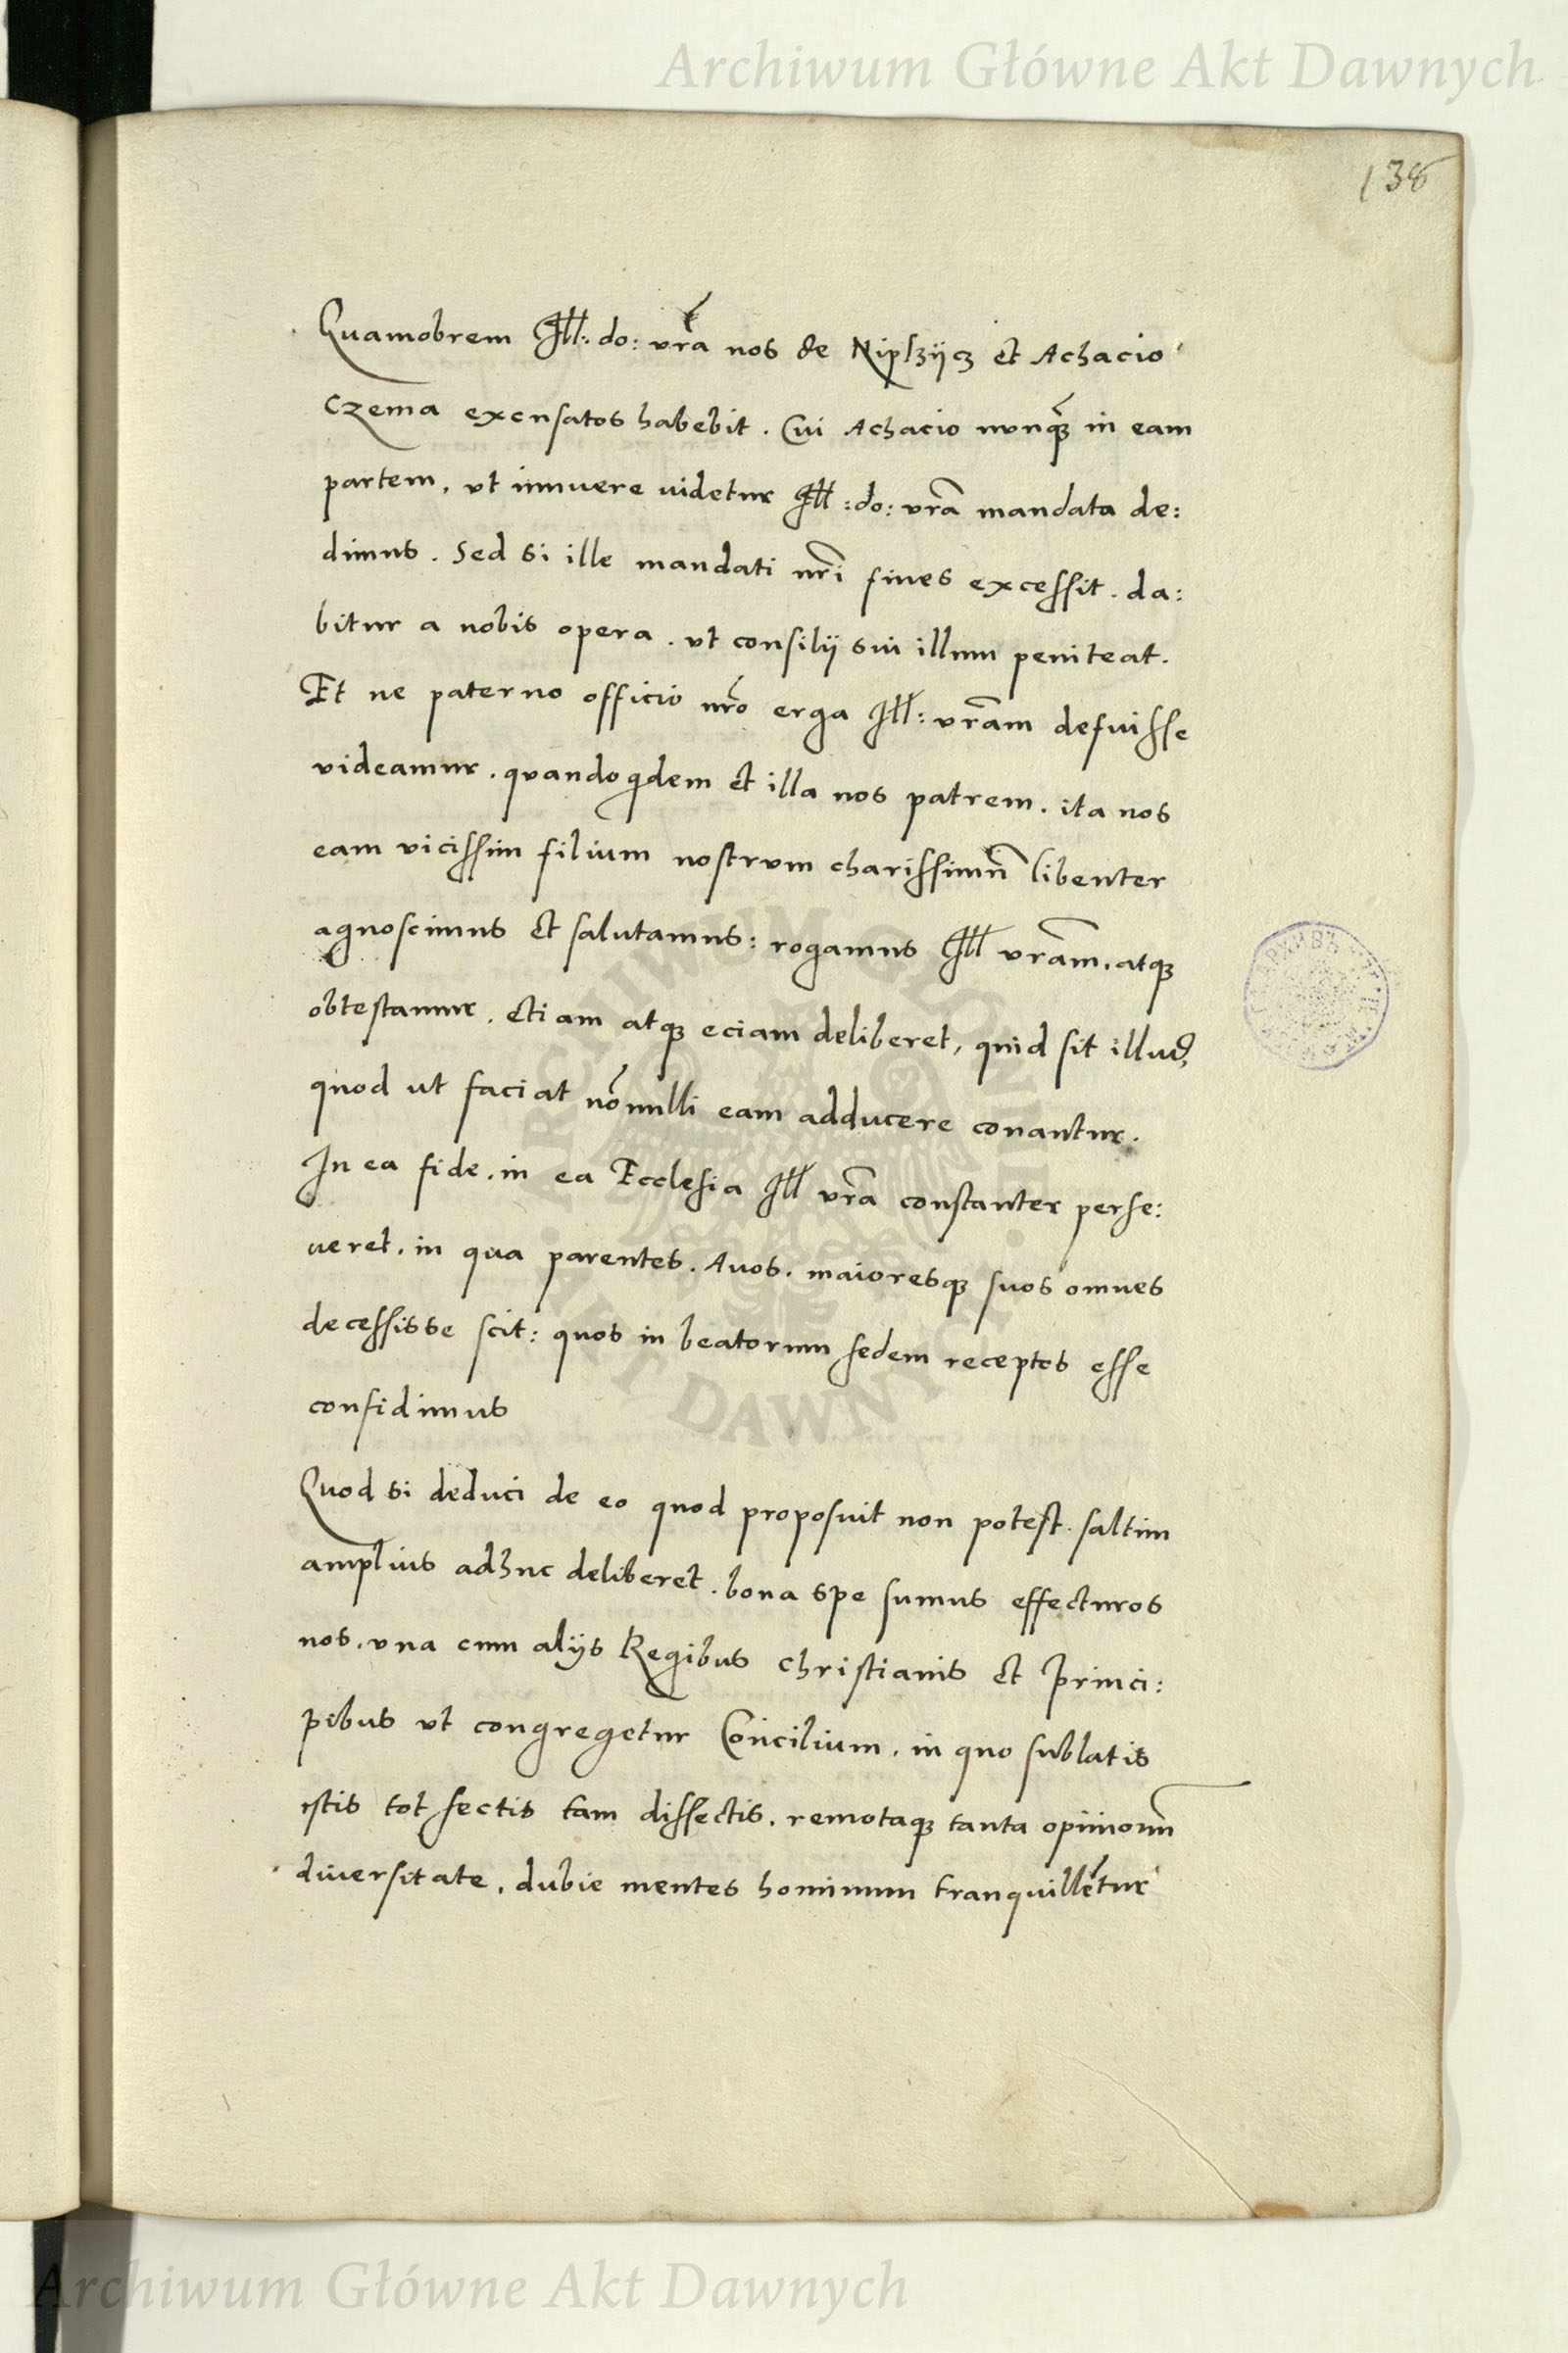 Archiwum Główne Akt Dawnych
138
Quamobrem Ill: do: vr̃a nos de Nipszijcz et Achacio
Czema excusatos habebit. Cui Achacio nunq̃ in eam
partem, vt innuere uidetur Ill: do: vr̃a mandata de:
dimus. Sed si ille mandati nr̃i fines excessit. da:
bitur a nobis opera. vt consilij sui illum peniteat.
Et ne paterno officio nr̃o erga Ill: vr̃am defuisse
videamur. quandoqdem et illa nos patrem. ita nos
eam vicissim filium nostrum charissimũ libenter
agnoscimus et salutamus: rogamus Ill vr̃am. atq3
obtestamur. etiam atq3 eciam deliberet, quid sit illud,
quod ut faciat nõnulli eam adducere conantur.
In ea fide. in ea Ecclesia Ill vr̃a constanter perse:
ueret. in qua parentes. Auos. maioresq3 suos omnes
decessisse scit: quos in beatorum sedem receptos esse
confidimus
Quod si deduci de eo quod proposuit non potest. saltim
amplius adhuc deliberet. bona spe sumus effecturos
nos. vna cum alijs Regibus christianis et Princi:
pibus vt congregetur Concilium. in quo sublatis
istis tot sectis tam dissectis. remotaq3 tanta opinionũ
diuersitate, dubie mentes hominum tranquillẽtur
ARCHIWUM GŁÓWNE AKT DAWNYCH
Archiwum Główne Akt Dawnych